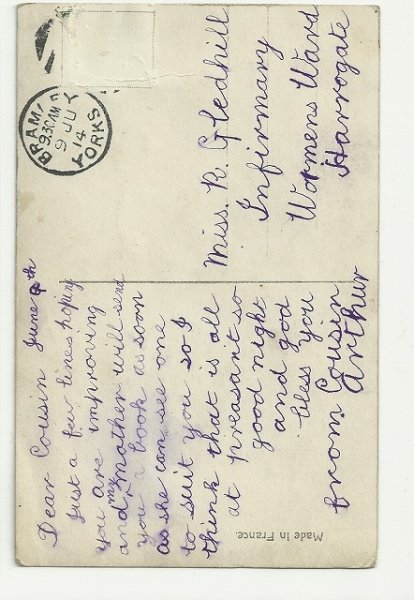 BRAM
9.30AM
9 JU
14
YORKS
Miss. R. Gledhill
Infirmary
Womens Ward
Harrogate
Dear Cousin June 8th
Just a few lines hoping
you are improving
and my mother will send
you a book as soon
as she can see one
to suit you so I
think that is all
at preasant so
good night
and god
bless you
from Cousin
Arthur
Made in France.